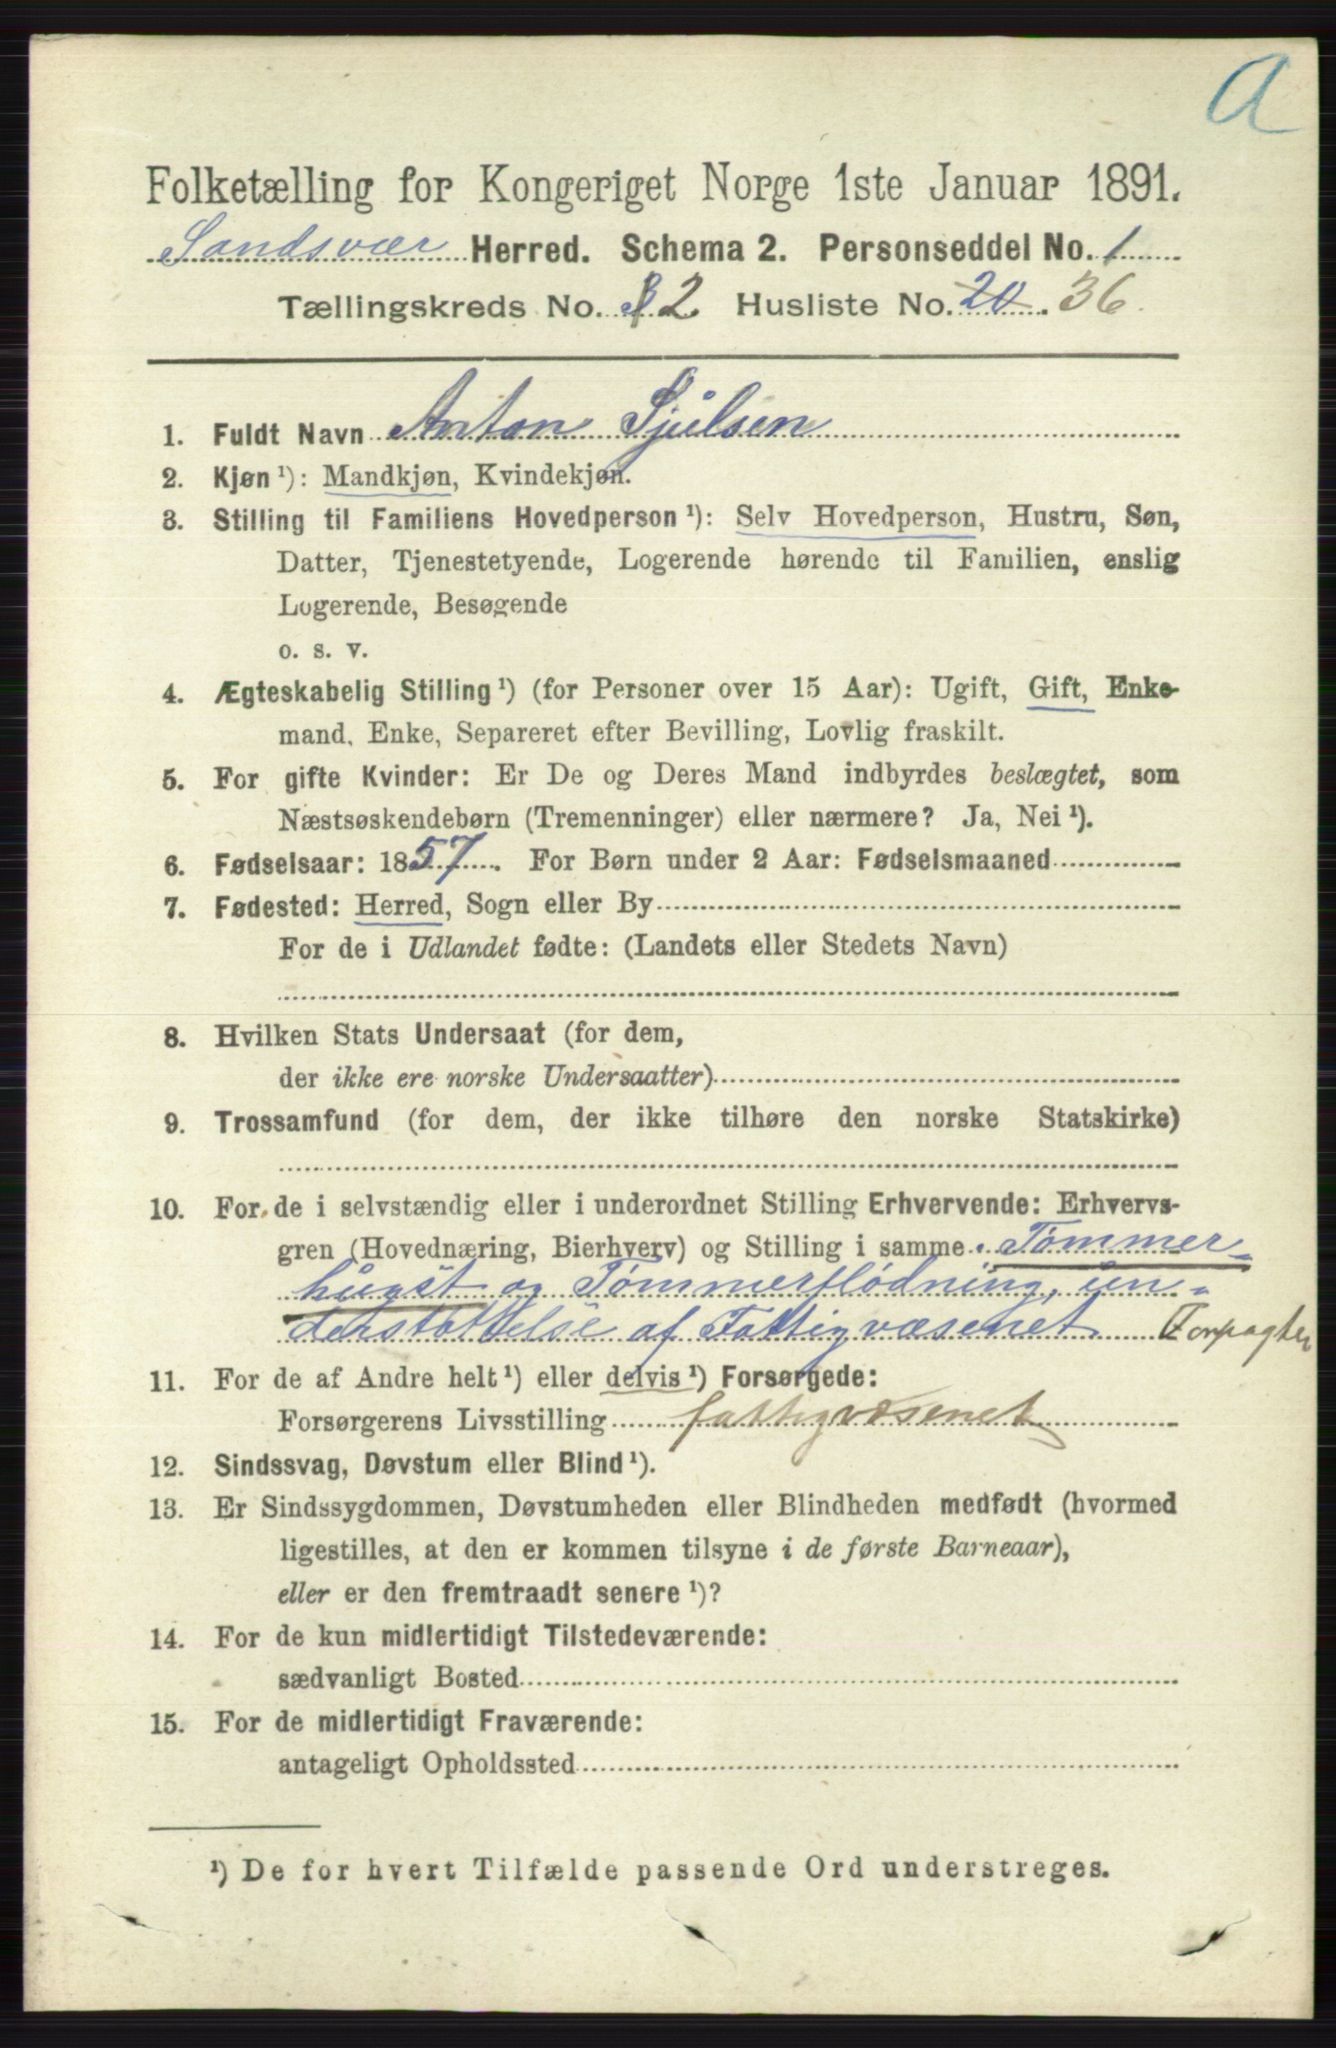 A
Folketælling for Kongeriget Norge 1ste Januar 1891.
Sandsvær Herred. Schema 2. Personseddel No. 1
Tællingskreds No. 3 2 Husliste No. 20. 36
1. Fuldt Navn Anton Sjulsen
2. Kjøn ¹): Mandkjøn, Kvindekjøn.
3. Stilling til Familiens Hovedperson ¹): Selv Hovedperson, Hustru, Søn,
Datter, Tjenestetyende, Logerende hørende til Familien, enslig
Logerende, Besøgende
o. s. v.
4. Ægteskabelig Stilling ¹) (for Personer over 15 Aar): Ugift, Gift, Enke-
mand, Enke, Separeret efter Bevilling, Lovlig fraskilt.
5. For gifte Kvinder: Er De og Deres Mand indbyrdes beslægtet, som
Næstsøskendebørn (Tremenninger) eller nærmere? Ja, Nei ¹).
6. Fødselsaar: 1857. For Børn under 2 Aar: Fødselsmaaned
7. Fødested: Herred, Sogn eller By
For de i Udlandet fødte: (Landets eller Stedets Navn)
8. Hvilken Stats Undersaat (for dem,
der ikke ere norske Undersaatter)
9. Trossamfund (for dem, der ikke tilhøre den norske Statskirke)
10. For de i selvstændig eller i underordnet Stilling Erhvervende: Erhvervs-
gren (Hovednæring, Bierhverv) og Stilling i samme. Tømmer-
hugst og Tømmerflødning, un-
derstøttelse af Fattigvæsenet Forpagter
11. For de af Andre helt ¹) eller delvis ¹) Forsørgede:
Forsørgerens Livsstilling fattigvæsenet
12. Sindssvag, Døvstum eller Blind ¹).
13. Er Sindssygdommen, Døvstumheden eller Blindheden medfødt (hvormed
ligestilles, at den er kommen tilsyne i de første Barneaar),
eller er den fremtraadt senere ¹)?
14. For de kun midlertidigt Tilstedeværende:
sædvanligt Bosted
15. For de midlertidigt Fraværende:
antageligt Opholdssted
¹) De for hvert Tilfælde passende Ord understreges.